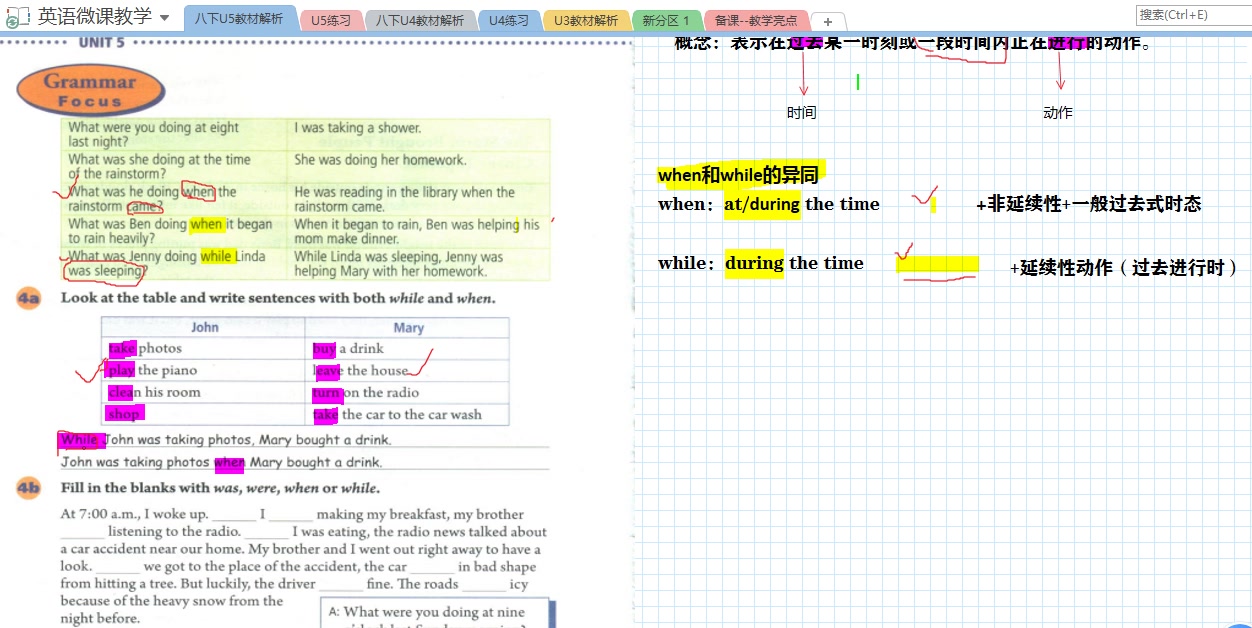 英语微课教学
八下U5教材解析
U5练习
八下U4教材解析
U4练习
U3教材解析
新分区 1
备课--教学亮点
+
搜索(Ctrl+E)
UNIT 5
Grammar
Focus
What were you doing at eight
last night?
I was taking a shower.
What was she doing at the time
of the rainstorm?
She was doing her homework.
What was he doing when the
rainstorm came?
He was reading in the library when the
rainstorm came.
What was Ben doing when it began
to rain heavily?
When it began to rain, Ben was helping his
mom make dinner.
What was Jenny doing while Linda
was sleeping?
While Linda was sleeping, Jenny was
helping Mary with her homework.
4a Look at the table and write sentences with both while and when.
John Mary
take photos buy a drink
play the piano leave the house
clean his room turn on the radio
shop take the car to the car wash
While John was taking photos, Mary bought a drink.
John was taking photos when Mary bought a drink.
4b Fill in the blanks with was, were, when or while.
At 7:00 a.m., I woke up. ______ I ______ making my breakfast, my brother
______ listening to the radio. ______ I was eating, the radio news talked about
a car accident near our home. My brother and I went out right away to have a
look. ______ we got to the place of the accident, the car ______ in bad shape
from hitting a tree. But luckily, the driver ______ fine. The roads ______ icy
because of the heavy snow from the
night before.
A: What were you doing at nine
概念：表示在过去某一时刻或一段时间内正在进行的动作。
时间
动作
when和while的异同
when：at/during the time
+非延续性+一般过去式时态
while：during the time
+延续性动作（过去进行时）